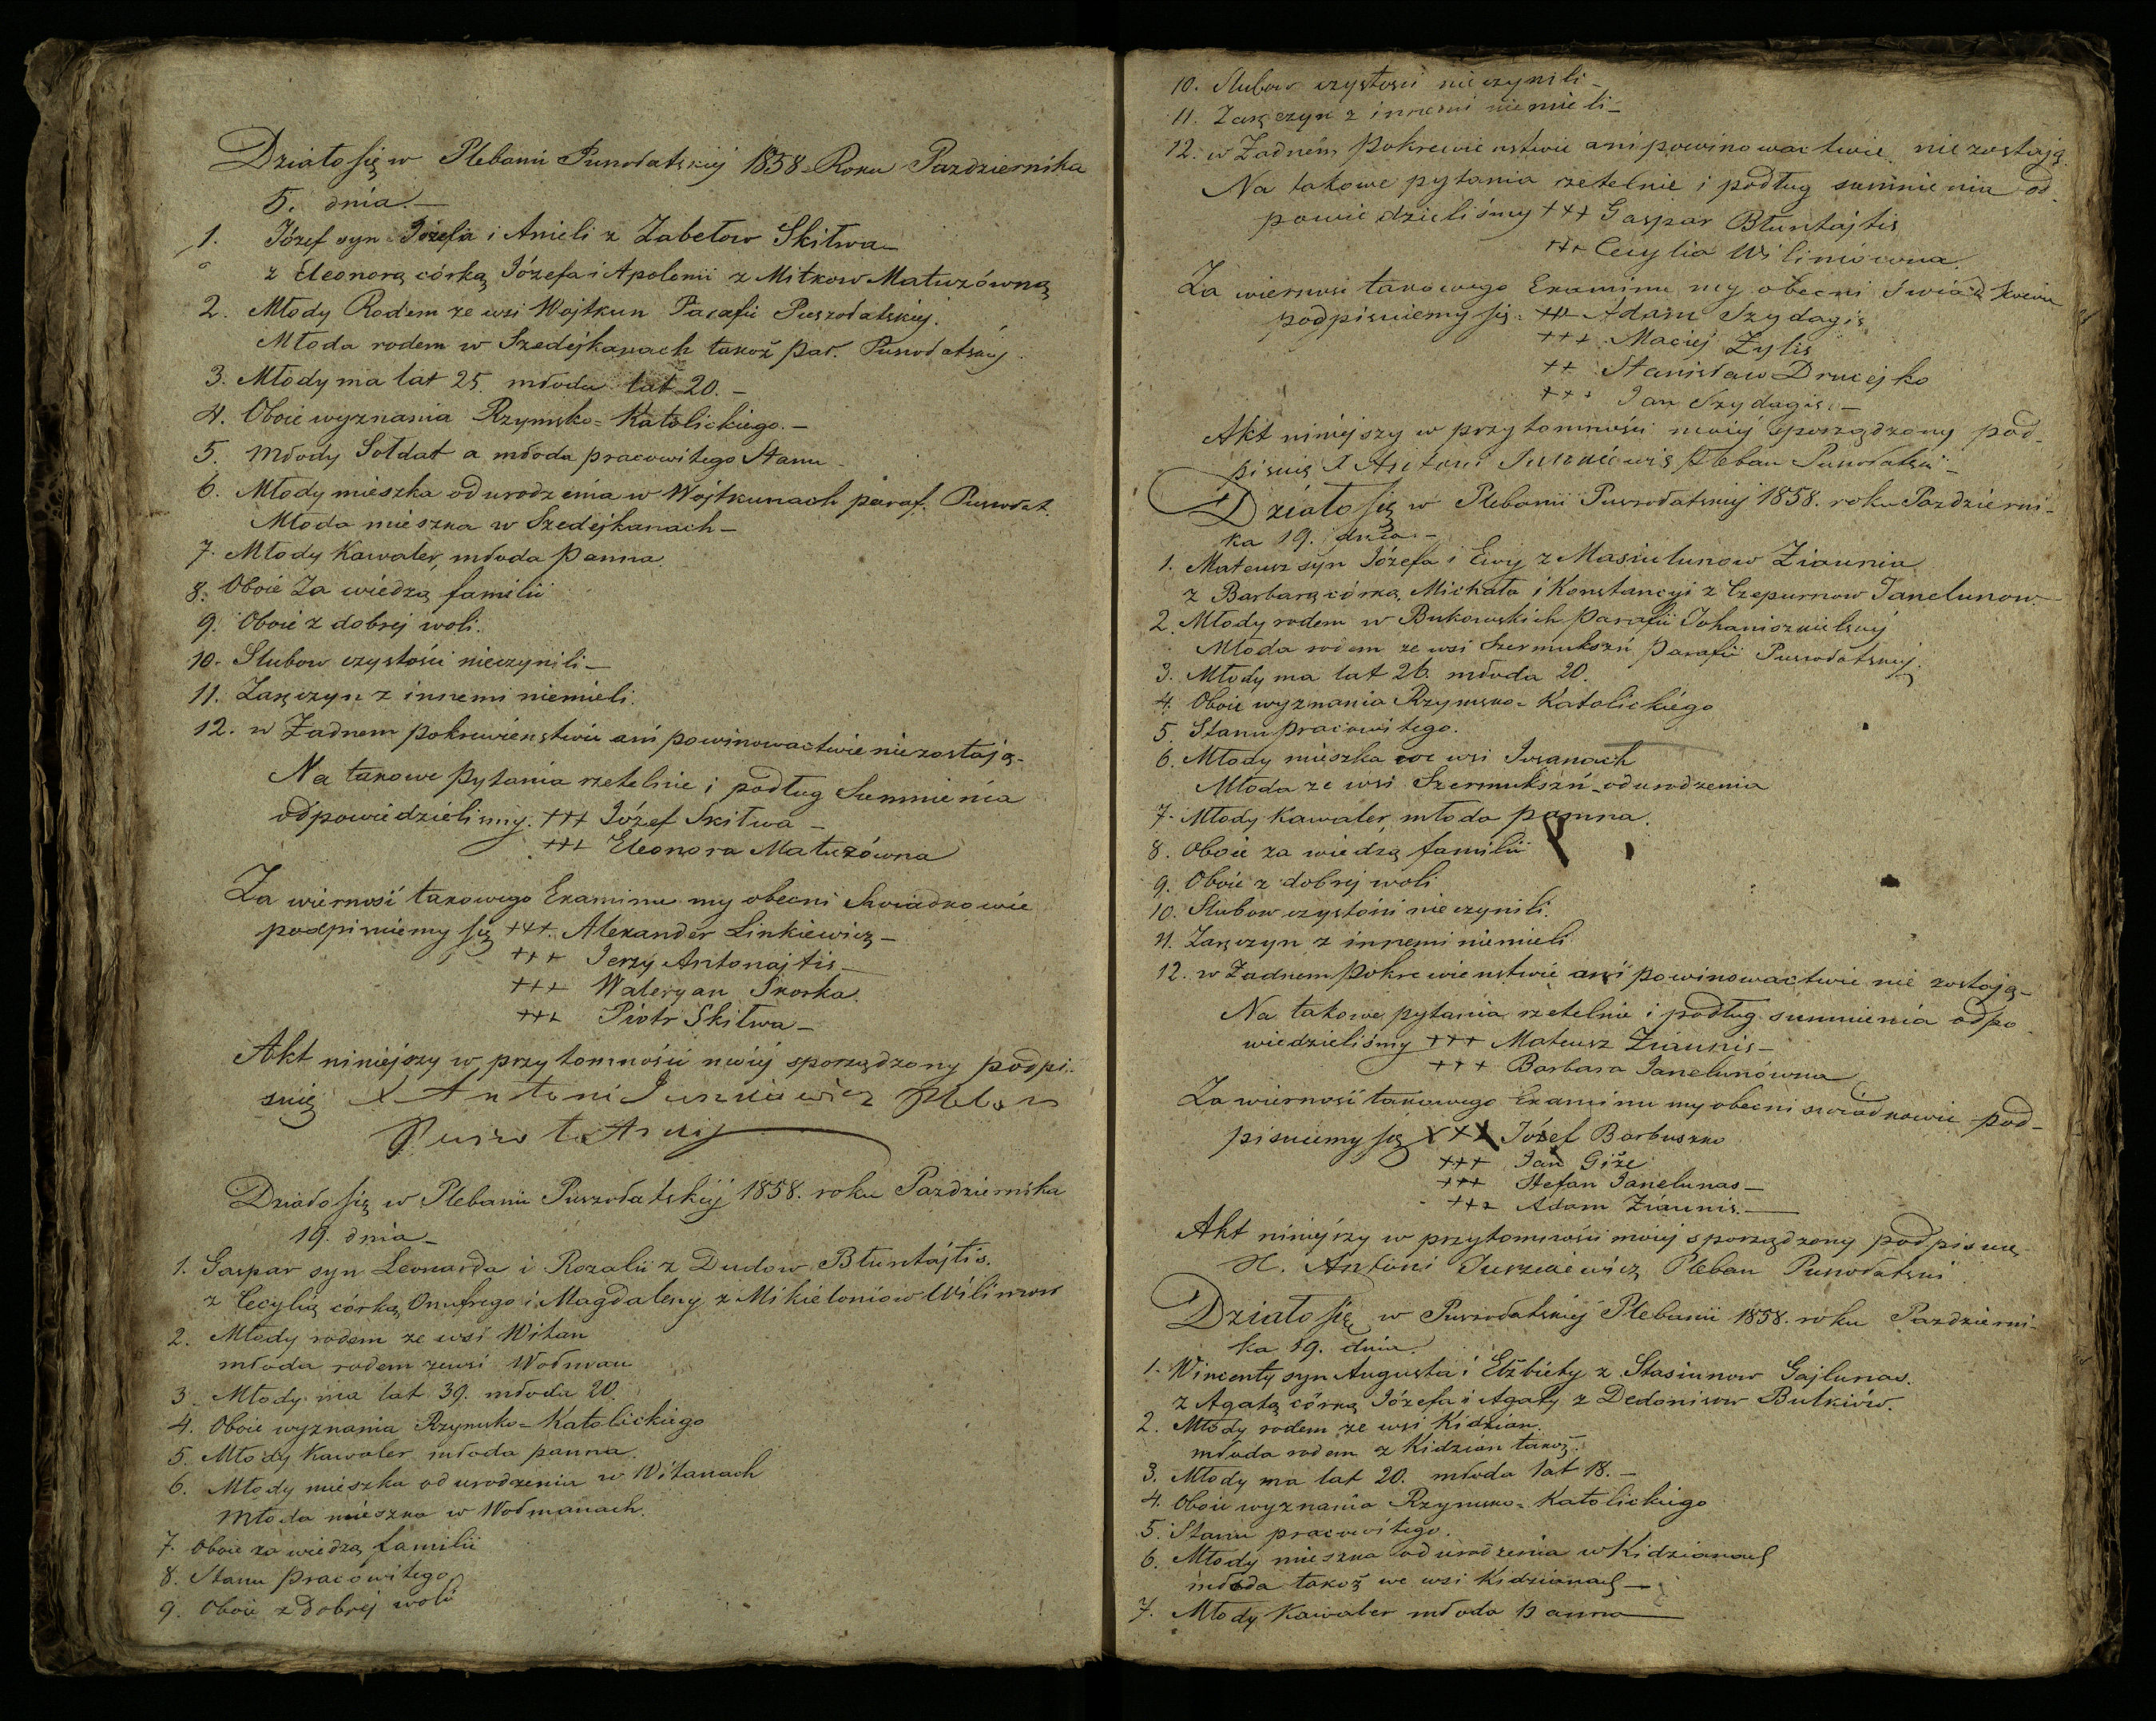 Działo się w Plebanii Puszołatskiej 1858 Roku Pazdziernika
5. dnia.—
1. Józef syn Józefa i Anieli z Zabełow Skitwa—
z Eleonorą córką Józefa i Apolonii z Mitkow Matuzówną
2. Młody Rodem ze wsi Wojtkun Parafii Puszołatskiej.
Młoda rodem w Szedejkanach takoż par. Puszołatskiej
3. Młody ma lat 25. młoda lat 20.—
4. Oboie wyznania Rzymsko=Katolickiego.—
5. Młody Sołdat a młoda pracowitego Stanu—
6. Młody mieszka od urodzenia w Wojtkunach paraf. Puszołat.
Młoda mieszka w Szedejkanach—
7. Młody Kawaler, młoda Panna.
8. Oboie Za wiedzą familii
9. Oboie z dobrej woli.
10. Slubow czystości nieczynili—
11. Zaręczyn z innemi niemieli.
12. w Żadnem pokrewienstwie ani powinowactwie niezostają—
Na takowe Pytania rzetelnie i podług Sumnienia
odpowiedzielismy. +++ Józef Skitwa—
+++ Eleonora Matuzówna
Za wierność takowego Examinu my obecni Swiadkowie
podpisuiemy się +++. Alexander Linkiewicz—
+++ Jerzy Antonajtis—
+++ Waleryan Skorka.
+++ Piotr Skitwa—
Akt niniejszy w przytomności moiej sporządzony podpi-
suię X Antoni Juszkiewicz Pleban
Puszołatski
Działo się w Plebanii Puszołatskiej 1858. roku Pazdziernika
19. dnia—
1. Gaspar syn Leonarda i Rozalii z Dudow Błuntajtis.
z Cecylią córką Onufrego i Magdaleny z Mikieloniow Wilimow
2. Młody rodem ze wsi Witan
młoda rodem zewsi Wołman
3. Młody ma lat 39. młoda 20.
4. Oboie wyznania Rzymsko=Katolickiego
5. Młody Kawaler młoda panna.
6. Młody mieszka od urodzenia w Witanach
Młoda mieszka w Wołmanach.
7. Oboie za wiedzą familii
8. Stanu Pracowitego
9. Oboie z Dobrej woli
10. Slubow czystosci nieczynili—
11. Zaręczyn z innemi niemieli—
12. w Żadném Pokrewienstwie ani powinowactwie niezostają.
Na takowe pytania rzetelnie i podług sumnienia od-
powiedzieliśmy +++ Gaspar Błuntajtis
+++ Cecylia Wilimówna.
Za wiernosć takowego Examinu my obecni świadkowie
podpisuiemy się. +++ Adam Szydagis
+++ Maciej Żylis
++ Stanisław Drucejko
+++ Jan Szydagis.—
Akt niniejszy w przytomności moiéj sporządzony pod-
pisuię X Antoni Juszkiewicz Pleban Puszołatski—
Działo się w Plebanii Puszołatskiej 1858. roku Pazdzierni-
ka 19. dnia.—
1. Mateusz syn Józefa i Ewy z Masiulunow Ziaunia
z Barbarą córką Michała i Konstancyi z Czepurnow Janelunow.
2. Młody rodem w Bukowskich Parafii Johaniszkielskiej
Młoda rodem ze wsi Szermukszń Parafii Puszołatskiej.
3. Młody ma lat 26. młoda 20.
4. Oboie wyznania Rzymsko=Katolickiégo
5. Stanu pracowitego.
6. Młody mieszka we wsi
Młoda ze wsi Szermukszń od urodzenia
7. Młody Kawaler młoda panna.
8. Oboie za wiedzą familii
9. Oboie z dobrej woli
10. Slubow czystości nieczynili.
11. Zaręczyn z innemi niemieli
12. w Żadnem Pokrewienstwie ani powinowactwie nie zostają—
Na takowe pytania rzetelnie i podług sumnienia odpo
wiedzieliśmy +++ Mateusz Ziaunis—
+++ Barbara Janelunówna
Za wierność takowego Examinu my obecni swiadkowie pod-
pisuiemy się +++ Józef Barbuszko
+++ Jan Giże
+++ Stefan Janelunas—
+++ Adam Ziaunis.—
Akt niniejszy w przytomności moiej sporządzony podpisuię
X. Antoni Juszkiewicz Pleban Puszołatski
Działo się w Puszołatskiej Plebanii 1858. roku Pazdzierni-
ka 19. dnia.
1. Wincenty syn Augusta i Elżbiety z Stasiunow Gajlunas.
z Agatą córką Józefa i Agaty z Dedonisow Butkiów.
2. Młody rodem ze wsi Kidzian.
młoda rodem z Kidzian takoż.
3. Młody ma lat 20. młoda lat 18.—
4. Oboie wyznania Rzymsko=Katolickiego
5. Stanu pracowitego.
6. Młody mieszka od urodzenia w Kidzianach
młoda takoż we wsi Kidzianach—
7. Młody Kawaler młoda panna—